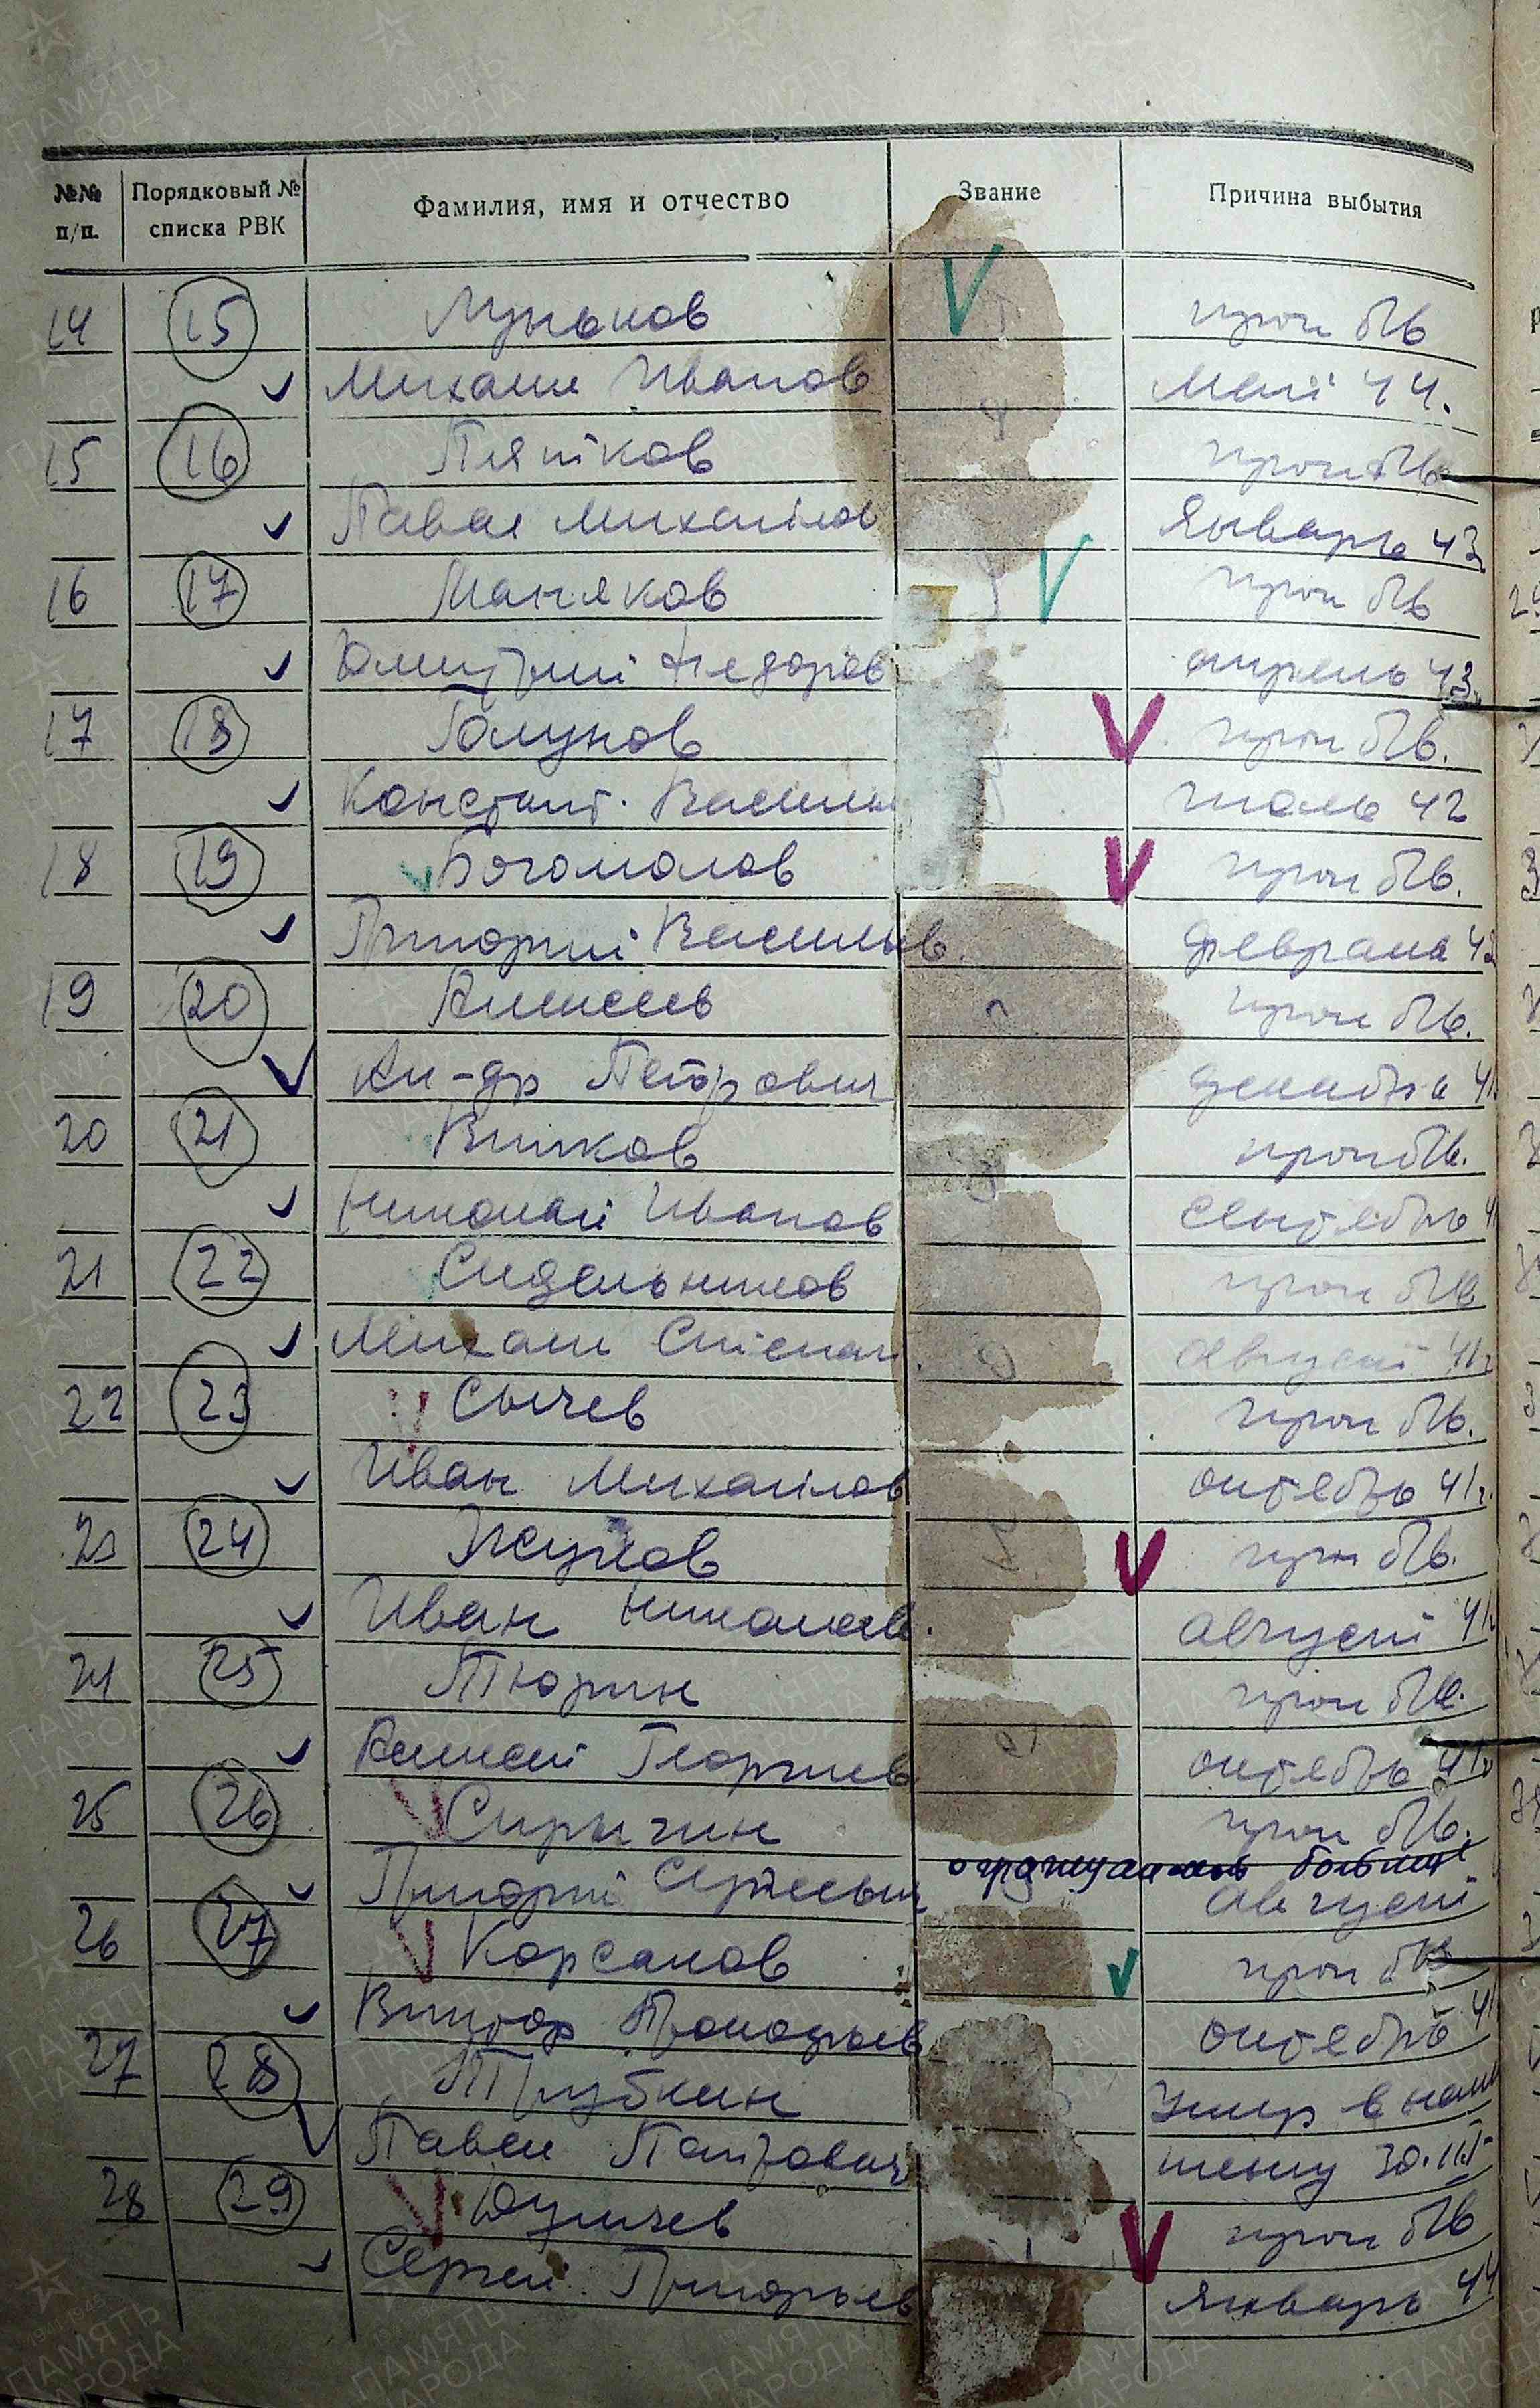 №№ п/п. Порядковый № списка РВК Фамилия, имя и отчество Звание Причина выбытия
14 15 Луньков проп б/в
Михаил Иванов май 44.
15 16 Пятков проп б/в
Павел Михайлов Январь 43
16 17 Маняков проп б/в
Дмитрий Федоров апрель 43.
17 18 Голунов проп б/в.
Констант. Василь июль 42
18 19 Богомолов проп б/в.
Григорий Васильев. февраль 42
19 20 Алексеев проп б/в.
Ал-др Петрович декабрь 41.
20 21 Витков проп б/в.
Николай Иванов сентябрь 41
21 22 Сидельников проп б/в
Михаил Степан. август 41г
22 23 Сычев проп б/в.
Иван Михайлов октябрь 41г.
23 24 Жуков проп б/в.
Иван Николаев. август 41г
24 25 Тюрин проп б/в.
Алексей Георгиев октябрь 41г
25 26 Сирычин проп б/в.
Григорий Сергеевич август
26 27 Корсаков проп б/в
Виктор Прокофьев октябрь 41
27 28 Трубкин Умер в
Павел Петрович 30.III
28 29 проп б/в
Сергей Григорьев Январь 44